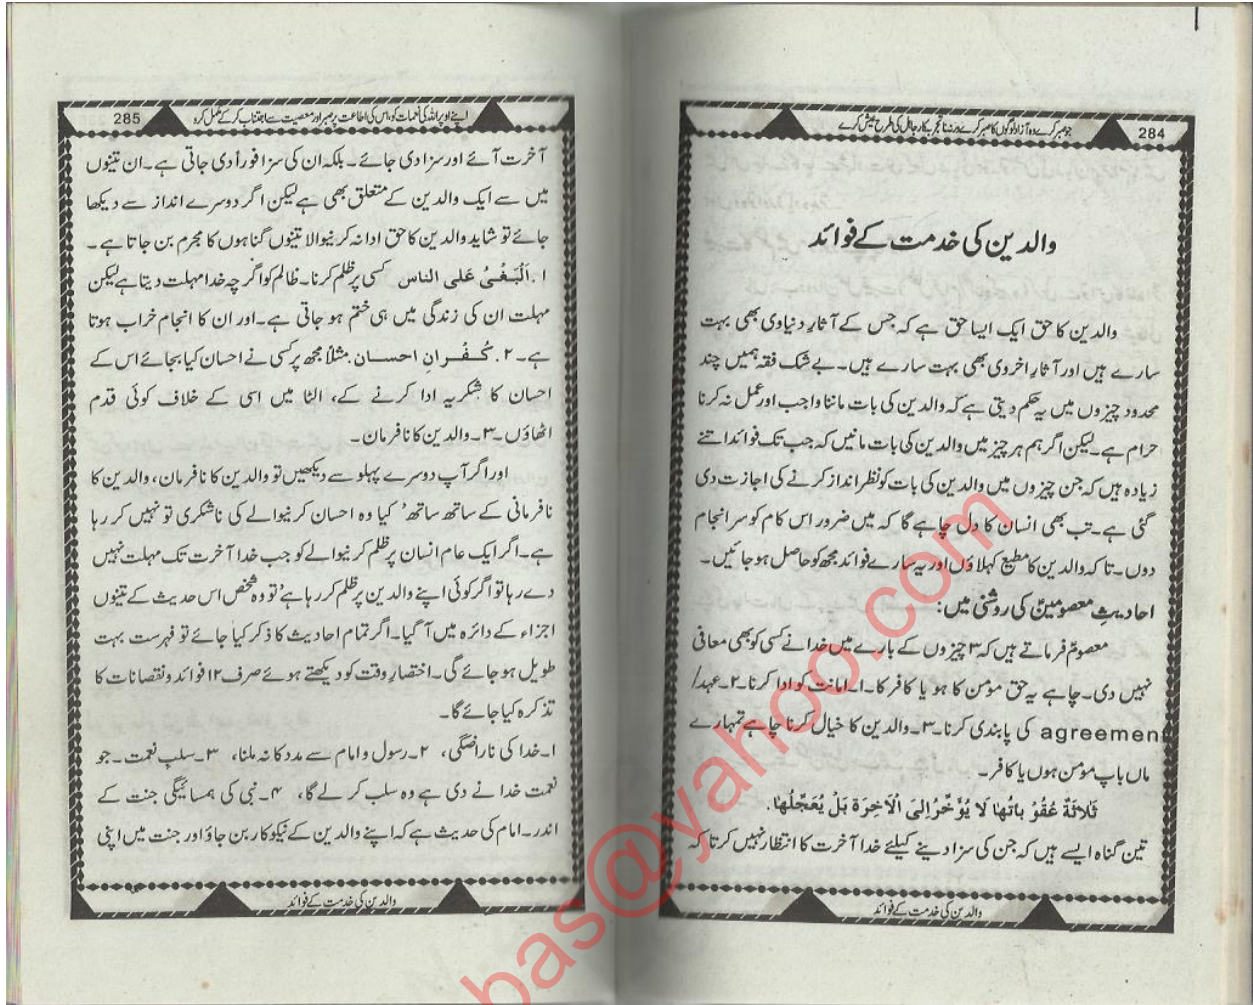 284
جو صبر کرے وہ آزاد لوگوں کا صبر کرے ورنہ ناتجربہ کار جاہل کی طرح عیش کرے
والدین کی خدمت کے فوائد
والدین کا حق ایک ایسا حق ہے کہ جس کے آثارِ دنیاوی بھی بہت
سارے ہیں اور آثارِ اخروی بھی بہت سارے ہیں۔ بے شک فقہ ہمیں چند
محدود چیزوں میں یہ حکم دیتی ہے کہ والدین کی بات ماننا واجب اور عمل نہ کرنا
حرام ہے۔ لیکن اگر ہم ہر چیز میں والدین کی بات مانیں کہ جب تک فوائد اتنے
زیادہ ہیں کہ جن چیزوں میں والدین کی بات کو نظر انداز کرنے کی اجازت دی
گئی ہے۔ تب بھی انسان کا دل چاہے گا کہ میں ضرور اس کام کو سر انجام
دوں۔ تاکہ والدین کا مطیع کہلاؤں اور یہ سارے فوائد مجھ کو حاصل ہو جائیں۔
احادیثِ معصومینؑ کی روشنی میں:
معصومؑ فرماتے ہیں کہ ۳ چیزوں کے بارے میں خدا نے کسی کو بھی معافی
نہیں دی۔ چاہے یہ حق مؤمن کا ہو یا کافر کا۔ ۱۔ امانت کو ادا کرنا۔ ۲۔ عہد/
agreement کی پابندی کرنا۔ ۳۔ والدین کا خیال کرنا چاہے تمہارے
ماں باپ مومن ہوں یا کافر۔
ثَلاثَةٌ عُقُوْ بَاتُهَا لَا يُؤَخَّرُ اِلىَ الْآخِرَة بَلْ يُعَجَّلُهَا.
تین گناہ ایسے ہیں کہ جن کی سزا دینے کیلئے خدا آخرت کا انتظار نہیں کرتا کہ
والدین کی خدمت کے فوائد
285
اپنے اوپر اللہ کی نعمات کو، اس کی اطاعت پر صبر اور معصیت سے اجتناب کر کے مکمل کرو
آخرت آئے اور سزا دی جائے۔ بلکہ ان کی سزا فوراً دی جاتی ہے۔ ان تینوں
میں سے ایک والدین کے متعلق بھی ہے لیکن اگر دوسرے انداز سے دیکھا
جائے تو شاید والدین کا حق ادا نہ کرنیوالا تینوں گناہوں کا مجرم بن جاتا ہے۔
۱. اَلْبَغْيُ عَلى الناس کسی پر ظلم کرنا۔ ظالم کو اگرچہ خدا مہلت دیتا ہے لیکن
مہلت ان کی زندگی میں ہی ختم ہو جاتی ہے۔ اور ان کا انجام خراب ہوتا
ہے۔ ۲. کُفْرانِ احسان۔ مثلاً مجھ پر کسی نے احسان کیا بجائے اس کے
احسان کا شکریہ ادا کرنے کے، الٹا میں اسی کے خلاف کوئی قدم
اٹھاؤں۔ ۳۔ والدین کا نافرمان۔
اور اگر آپ دوسرے پہلو سے دیکھیں تو والدین کا نافرمان، والدین کا
نافرمانی کے ساتھ ساتھ' کیا وہ احسان کرنیوالے کی ناشکری تو نہیں کر رہا
ہے۔ اگر ایک عام انسان پر ظلم کرنیوالے کو جب خدا آخرت تک مہلت نہیں
دے رہا تو اگر کوئی اپنے والدین پر ظلم کر رہا ہے' تو وہ شخص اس حدیث کے تینوں
اجزاء کے دائرہ میں آ گیا۔ اگر تمام احادیث کا ذکر کیا جائے تو فہرست بہت
طویل ہو جائے گی۔ اختصارِ وقت کو دیکھتے ہوئے صرف ۱۲ فوائد و نقصانات کا
تذکرہ کیا جائے گا۔
۱۔ خدا کی ناراضگی، ۲۔ رسول و امام سے مدد کا نہ ملنا، ۳۔ سلبِ نعمت۔ جو
نعمت خدا نے دی ہے وہ سلب کر لے گا، ۴۔ نبی کی ہمسائیگی جنت کے
اندر۔ امام کی حدیث ہے کہ اپنے والدین کے نیکو کار بن جاؤ اور جنت میں اپنی
والدین کی خدمت کے فوائد
bas@yahoo.com